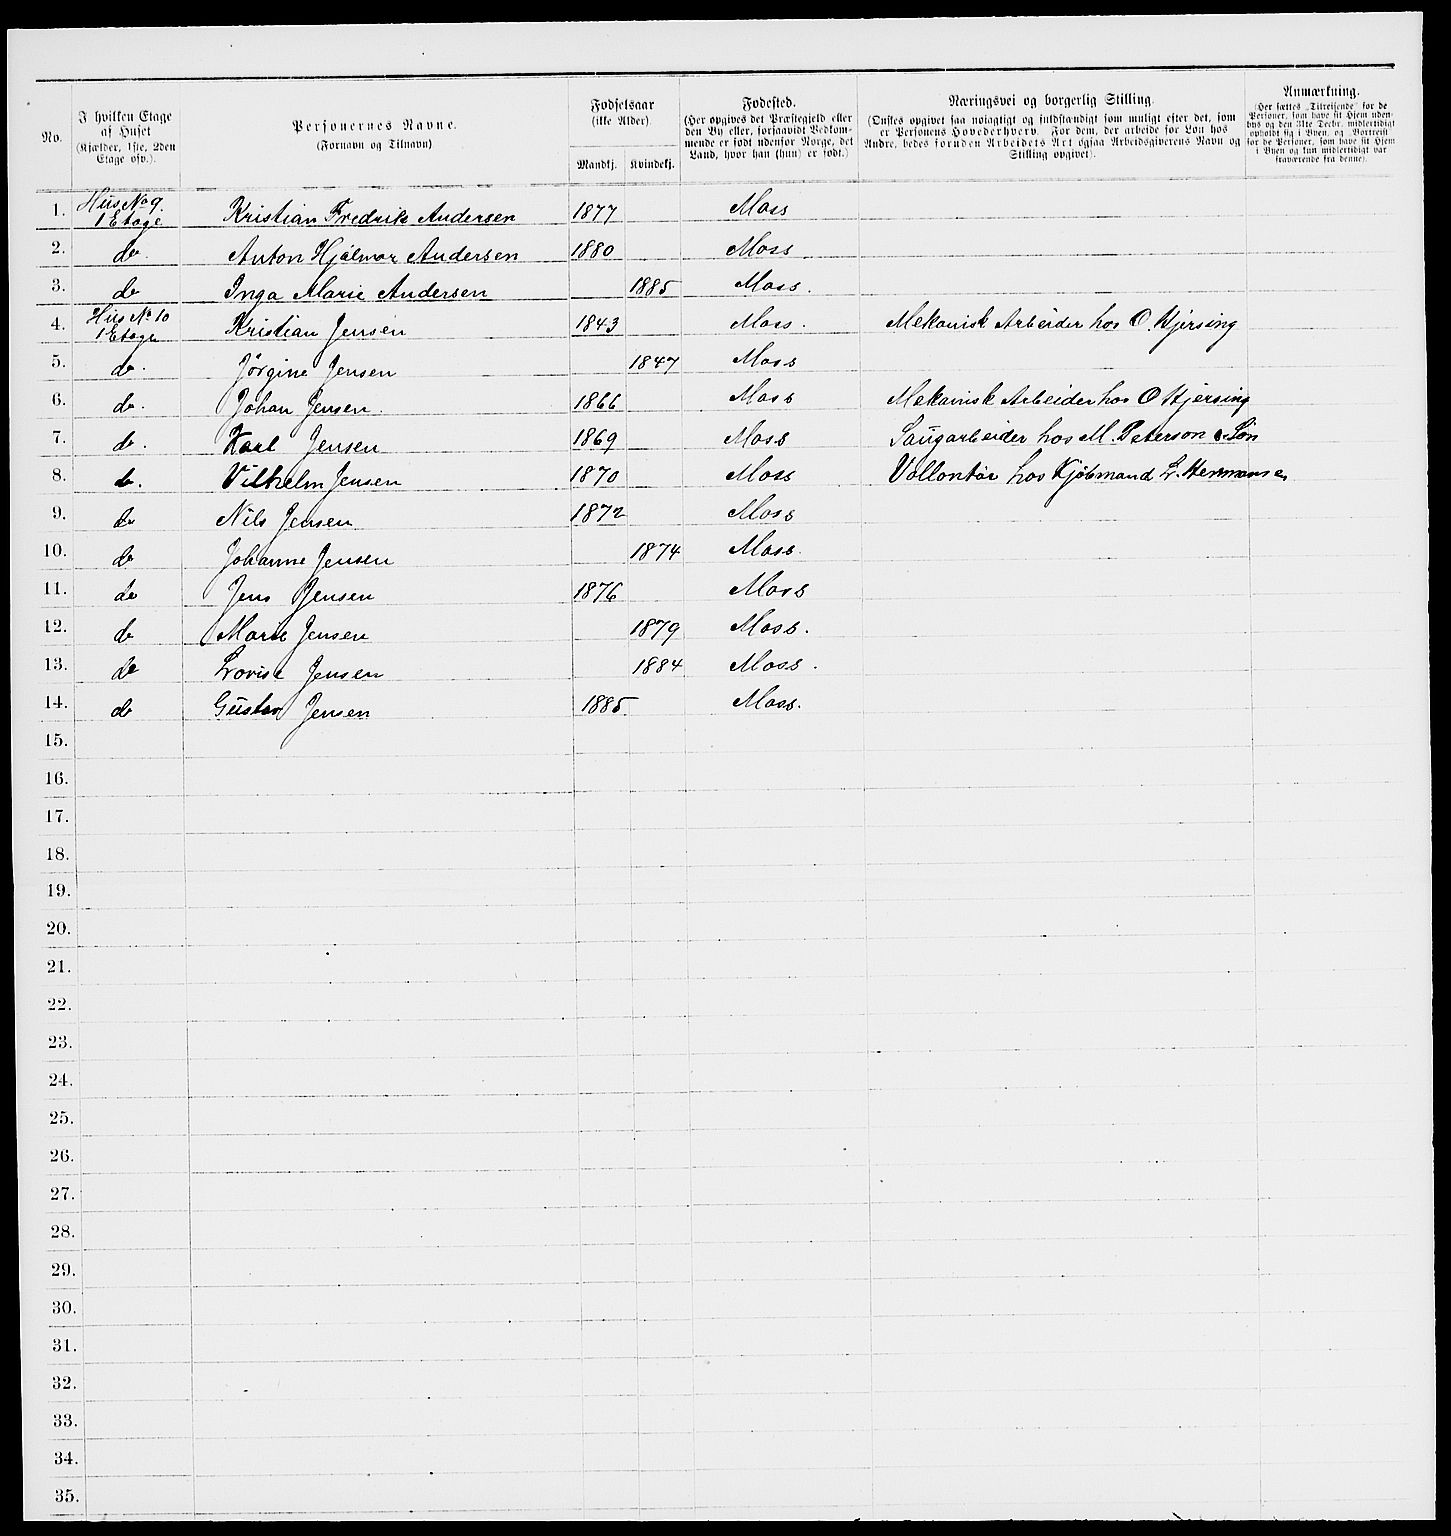 No.
I hvilken Etage af Huset (Kjælder, 1ste, 2den Etage osv.).
Personernes Navne. (Fornavn og Tilnavn)
Fødselsaar (ikke Alder).
Mandkj. Kvindekj.
Fødested. (Her opgives det Præstegjeld eller den By eller, forsaavidt Vedkommende er født udenfor Norge, det Land, hvor han (hun) er født.)
Næringsvei og borgerlig Stilling. (Ønskes opgivet saa nøiagtigt og fuldstændigt som muligt efter det, som er Personens Hovederhverv. For dem, der arbeide for Løn hos Andre, bedes foruden Arbeidets Art ogsaa Arbeidsgiverens Navn og Stilling opgivet).
Anmærkning. (Her sættes „Tilreisende“ for de Personer, som have sit Hjem udenbys og den 31te Decbr. midlertidigt opholdt sig i Byen, og „Bortreist“ for de Personer, som have sit Hjem i Byen og kun midlertidigt var fraværende fra denne).
1. Hus No 9. 1 Etage Kristian Fredrik Andersen 1877 Moss
2. do. Anton Hjalmar Andersen 1880 Moss
3. do Inga Marie Andersen 1885 Moss.
4. Hus No 10 1 Etage Kristian Jensen 1843 Moss. Mekanisk Arbeider hos O. Kjersing
5. do. Jörgine Jensen 1847 Moss
6. do. Johan Jensen. 1866 Moss Mekanisk Arbeider hos O Kjersing
7. do. Karl Jensen 1869 Moss Saugarbeider hos M. Peterson & Søn
8. do. Vilhelm Jensen 1870 Moss Vollontør hos Kjøbmand L. Hermansen
9. do Nils Jensen 1872 Moss
10. do Johanne Jensen 1874 Moss.
11. do Jens Jensen 1876 Moss
12. do Marie Jensen 1879 Moss.
13. do Lovise Jensen 1884 Moss.
14. do Gustav Jensen 1885. Moss.
15.
16.
17.
18.
19.
20.
21.
22.
23.
24.
25.
26.
27.
28.
29.
30.
31.
32.
33.
34.
35.